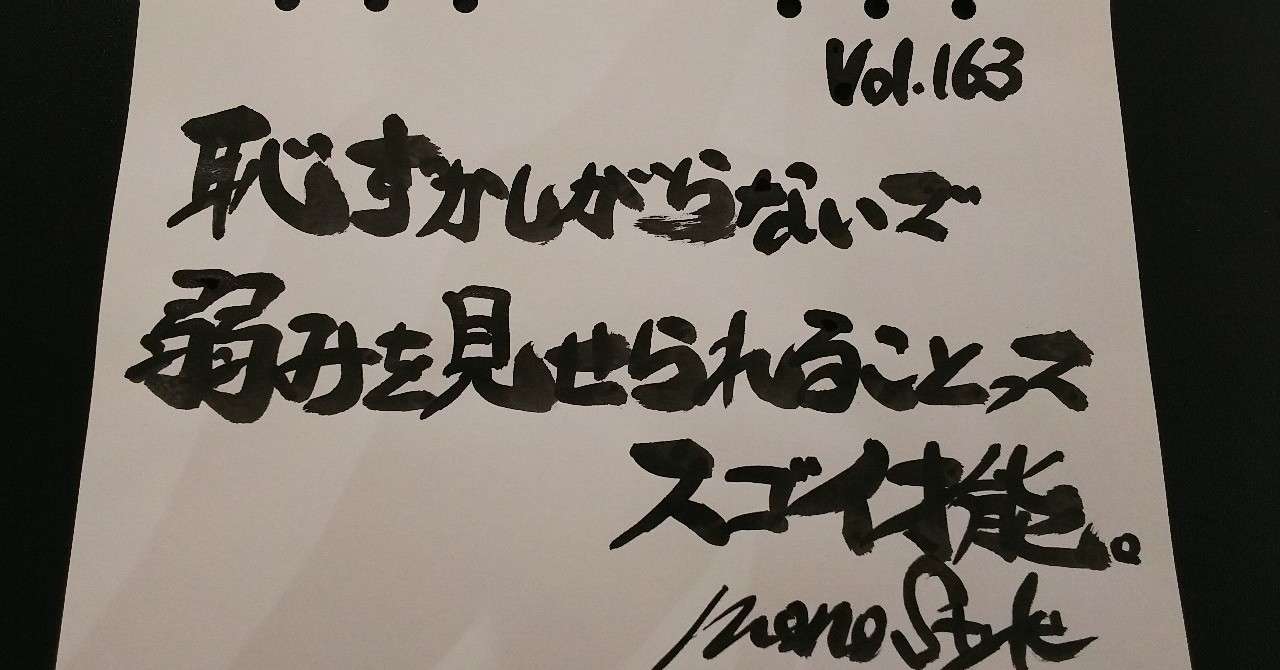 Vol.163
恥ずかしがらないで
弱みを見せられることって
スゴイ才能。
mono Style